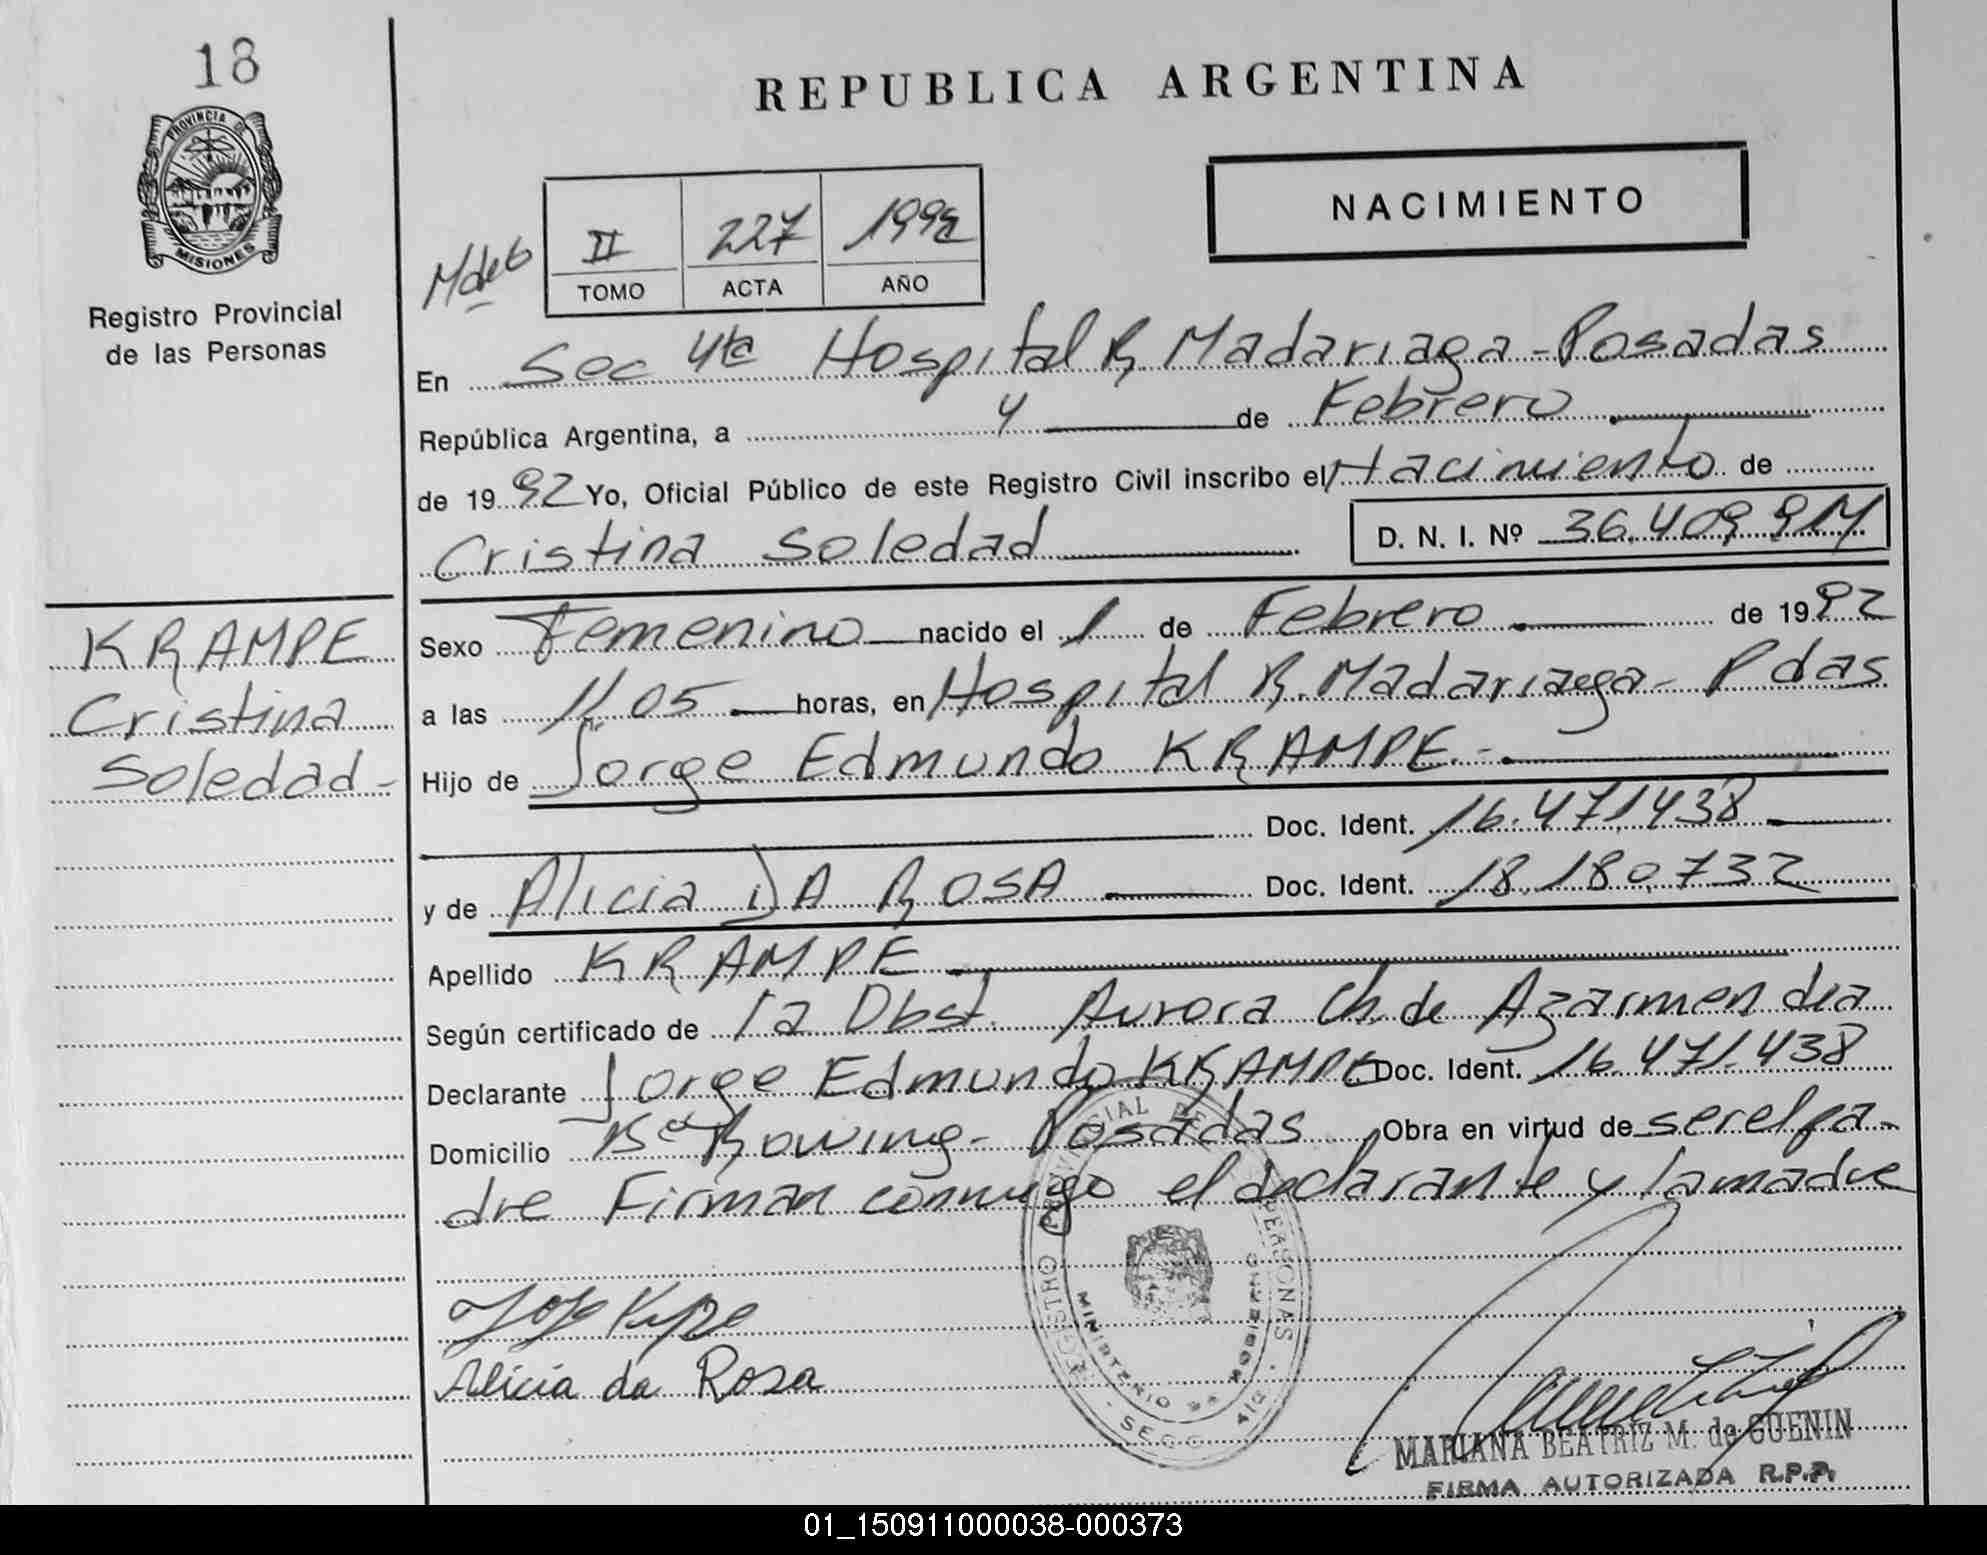 18
PROVINCIA DE
MISIONES
Registro Provincial
de las Personas
REPUBLICA ARGENTINA
NACIMIENTO
Mdeb
II 227 1992
TOMO ACTA AÑO
En Sec 4ta Hospital R. Madariaga - Posadas
República Argentina, a 4 de Febrero
de 1992 Yo, Oficial Público de este Registro Civil inscribo el Nacimiento de
Cristina Soledad D. N. I. Nº 36.409.914
KRAMPE
Cristina
Soledad -
Sexo Femenino nacido el 1 de Febrero de 1992
a las 11 05 horas, en Hospital R. Madariaga - Pdas
Hijo de Jorge Edmundo KRAMPE.-
Doc. Ident. 16.471.438
y de Alicia DA ROSA Doc. Ident. 18.180.732
Apellido KRAMPE
Según certificado de la Obst. Aurora Ch. de Azarmendia
Declarante Jorge Edmundo KRAMPE Doc. Ident. 16.471.438
Domicilio Bº Rowing - Posadas Obra en virtud de ser el pa-
dre Firman conmigo el declarante y la madre
Alicia da Rosa
REGISTRO PROVINCIAL DE PERSONAS
MINISTERIO DE GOBIERNO
MARIANA BEATRIZ M. de GUENIN
FIRMA AUTORIZADA R.P.P.
01_150911000038-000373